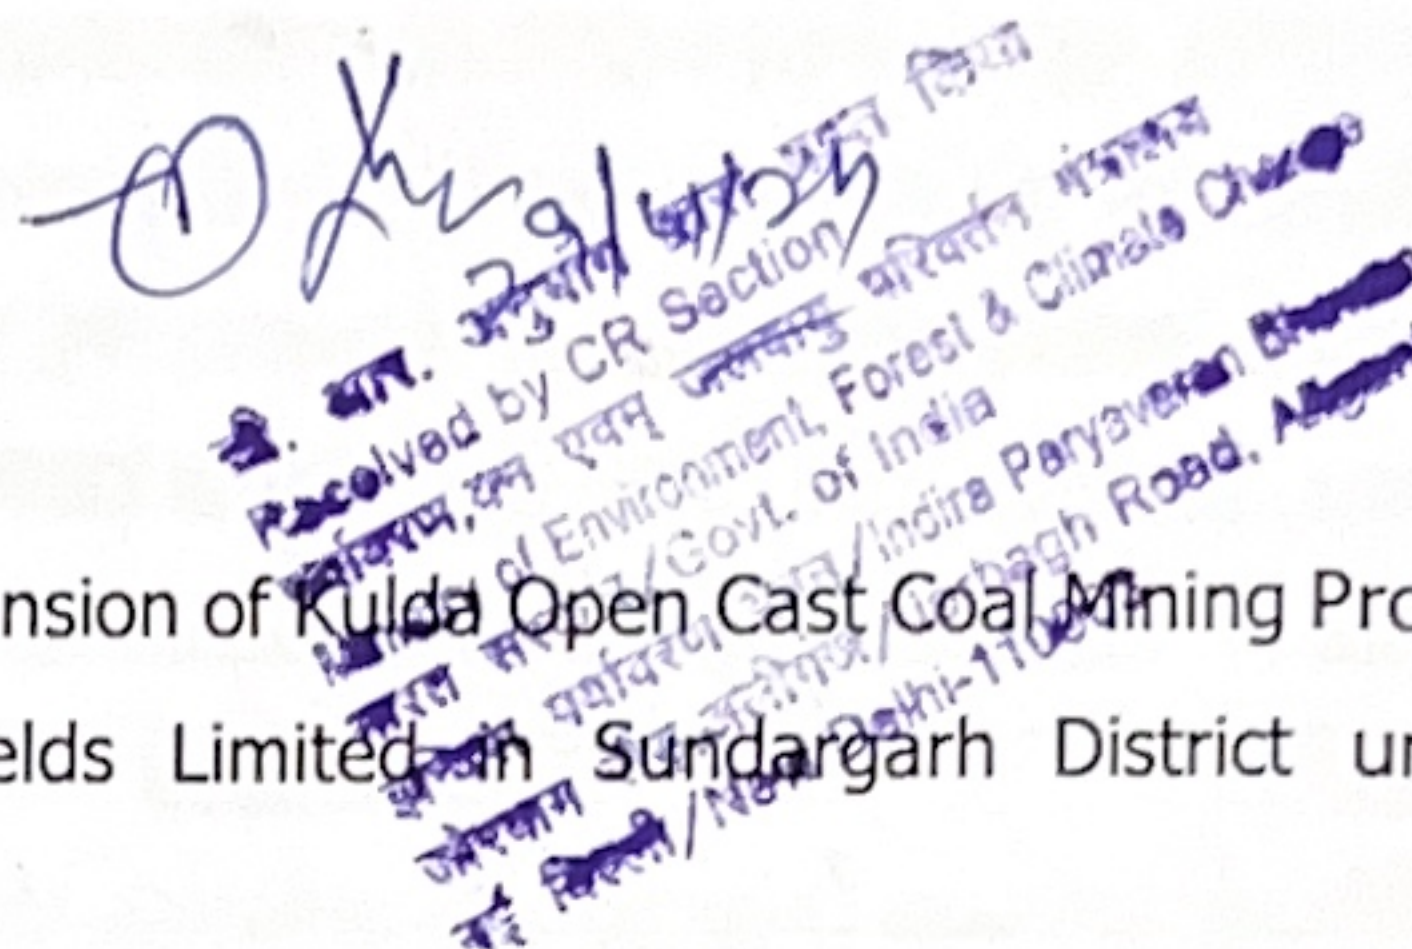 29/4/25
अनुभाग द्वारा प्राप्त किया
Received by CR Section
पर्यावरण, वन एवम् जलवायु परिवर्तन मंत्रालय
of Environment, Forest & Climate Change
भारत सरकार/Govt. of India
पर्यावरण भवन/Indira Paryavaran
जोरबाग रोड, अलीगंज/Jorbagh Road,
नई दिल्ली/New Delhi-1100
nsion of Kulda Open Cast Coal Mining Pro
elds Limited in Sundargarh District un